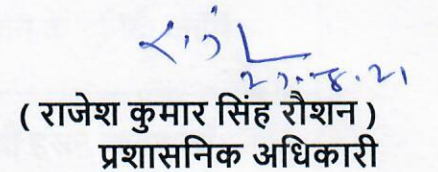 ( राजेश कुमार सिंह रौशन )
प्रशासनिक अधिकारी